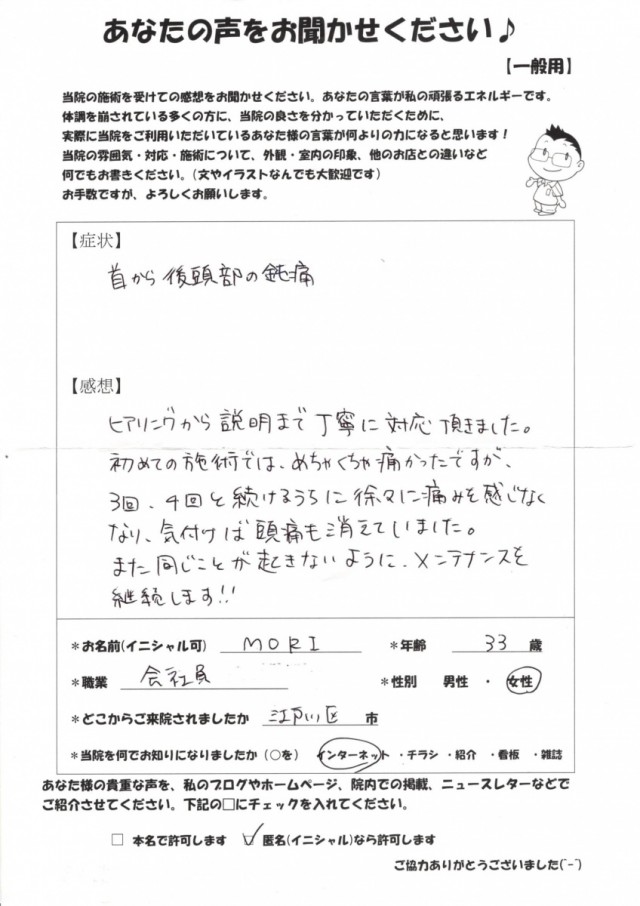 あなたの声をお聞かせください♪
【一般用】
当院の施術を受けての感想をお聞かせください。あなたの言葉が私の頑張るエネルギーです。
体調を崩されている多くの方に、当院の良さを分かっていただくために、
実際に当院をご利用いただいているあなた様の言葉が何よりの力になると思います！
当院の雰囲気・対応・施術について、外観・室内の印象、他のお店との違いなど
何でもお書きください。（文やイラストなんでも大歓迎です）
お手数ですが、よろしくお願いします。
【症状】
首から後頭部の鈍痛
【感想】
ヒアリングから説明まで丁寧に対応頂きました。
初めての施術では、めちゃくちゃ痛かったですが、
3回、4回と続けるうちに徐々に痛みを感じなく
なり、気付けば頭痛も消えていました。
また同じことが起きないように、メンテナンスを
継続します!!
＊お名前(イニシャル可) MORI ＊年齢 33 歳
＊職業 会社員 ＊性別 男性 ・ 女性
＊どこからご来院されましたか 江戸川区 市
＊当院を何でお知りになりましたか（○を） インターネット ・チラシ ・紹介 ・看板 ・雑誌
あなた様の貴重な声を、私のブログやホームページ、院内での掲載、ニュースレターなどで
ご紹介させてください。下記の□にチェックを入れてください。
□ 本名で許可します ☑ 匿名(イニシャル)なら許可します
ご協力ありがとうございました(^-^)